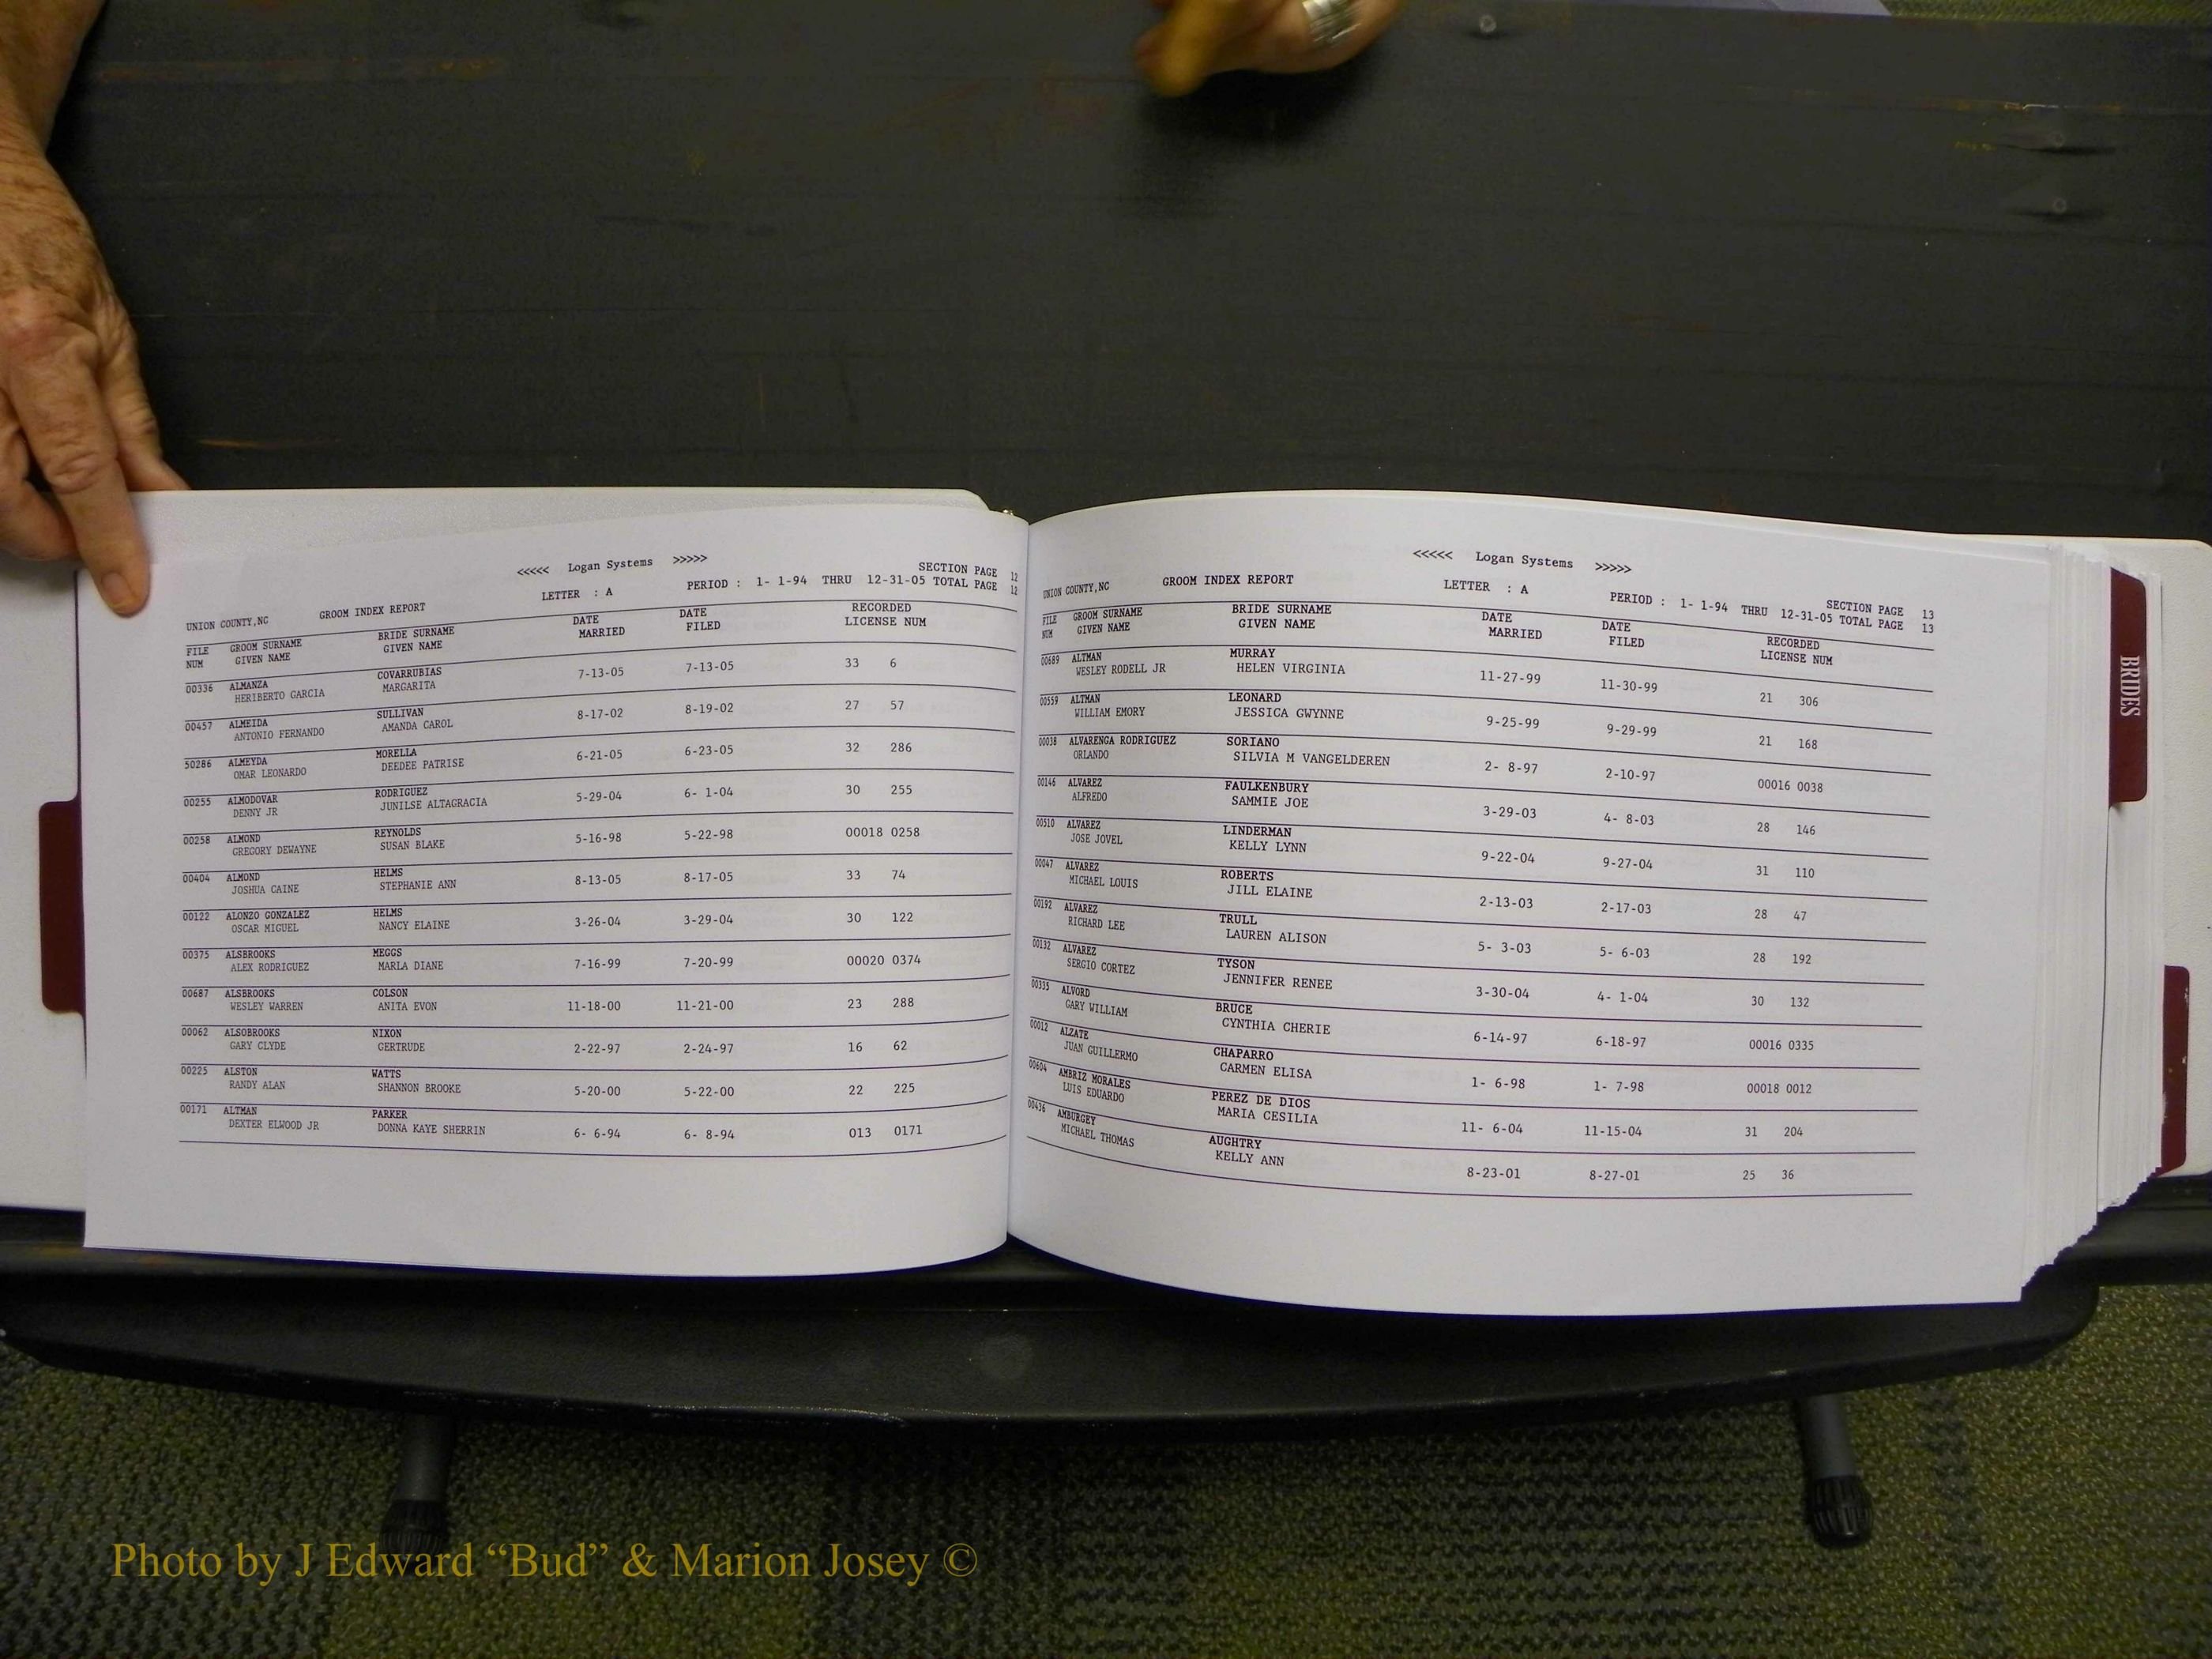 <<<<< Logan Systems >>>>>
SECTION PAGE 12
UNION COUNTY,NC GROOM INDEX REPORT LETTER : A PERIOD : 1- 1-94 THRU 12-31-05 TOTAL PAGE 12
FILE GROOM SURNAME BRIDE SURNAME DATE DATE RECORDED
NUM GIVEN NAME GIVEN NAME MARRIED FILED LICENSE NUM
00336 ALMANZA COVARRUBIAS 7-13-05 7-13-05 33 6
HERIBERTO GARCIA MARGARITA
00457 ALMEIDA SULLIVAN 8-17-02 8-19-02 27 57
ANTONIO FERNANDO AMANDA CAROL
50286 ALMEYDA MORELLA 6-21-05 6-23-05 32 286
OMAR LEONARDO DEEDEE PATRISE
00255 ALMODOVAR RODRIGUEZ 5-29-04 6- 1-04 30 255
DENNY JR JUNILSE ALTAGRACIA
00258 ALMOND REYNOLDS 5-16-98 5-22-98 00018 0258
GREGORY DEWAYNE SUSAN BLAKE
00404 ALMOND HELMS 8-13-05 8-17-05 33 74
JOSHUA CAINE STEPHANIE ANN
00122 ALONZO GONZALEZ HELMS 3-26-04 3-29-04 30 122
OSCAR MIGUEL NANCY ELAINE
00375 ALSBROOKS MEGGS 7-16-99 7-20-99 00020 0374
ALEX RODRIGUEZ MARLA DIANE
00687 ALSBROOKS COLSON 11-18-00 11-21-00 23 288
WESLEY WARREN ANITA EVON
00062 ALSOBROOKS NIXON 2-22-97 2-24-97 16 62
GARY CLYDE GERTRUDE
00225 ALSTON WATTS 5-20-00 5-22-00 22 225
RANDY ALAN SHANNON BROOKE
00171 ALTMAN PARKER 6- 6-94 6- 8-94 013 0171
DEXTER ELWOOD JR DONNA KAYE SHERRIN
<<<<< Logan Systems >>>>>
SECTION PAGE 13
UNION COUNTY,NC GROOM INDEX REPORT LETTER : A PERIOD : 1- 1-94 THRU 12-31-05 TOTAL PAGE 13
FILE GROOM SURNAME BRIDE SURNAME DATE DATE RECORDED
NUM GIVEN NAME GIVEN NAME MARRIED FILED LICENSE NUM
00689 ALTMAN MURRAY 11-27-99 11-30-99 21 306
WESLEY RODELL JR HELEN VIRGINIA
00559 ALTMAN LEONARD 9-25-99 9-29-99 21 168
WILLIAM EMORY JESSICA GWYNNE
00038 ALVARENGA RODRIGUEZ SORIANO 2- 8-97 2-10-97 00016 0038
ORLANDO SILVIA M VANGELDEREN
00146 ALVAREZ FAULKENBURY 3-29-03 4- 8-03 28 146
ALFREDO SAMMIE JOE
00510 ALVAREZ LINDERMAN 9-22-04 9-27-04 31 110
JOSE JOVEL KELLY LYNN
00047 ALVAREZ ROBERTS 2-13-03 2-17-03 28 47
MICHAEL LOUIS JILL ELAINE
00192 ALVAREZ TRULL 5- 3-03 5- 6-03 28 192
RICHARD LEE LAUREN ALISON
00132 ALVAREZ TYSON 3-30-04 4- 1-04 30 132
SERGIO CORTEZ JENNIFER RENEE
00335 ALVORD BRUCE 6-14-97 6-18-97 00016 0335
GARY WILLIAM CYNTHIA CHERIE
00012 ALZATE CHAPARRO 1- 6-98 1- 7-98 00018 0012
JUAN GUILLERMO CARMEN ELISA
00604 AMBRIZ MORALES PEREZ DE DIOS 11- 6-04 11-15-04 31 204
LUIS EDUARDO MARIA CESILIA
00436 AMBURGEY AUGHTRY 8-23-01 8-27-01 25 36
MICHAEL THOMAS KELLY ANN
BRIDES
Photo by J Edward “Bud” & Marion Josey ©